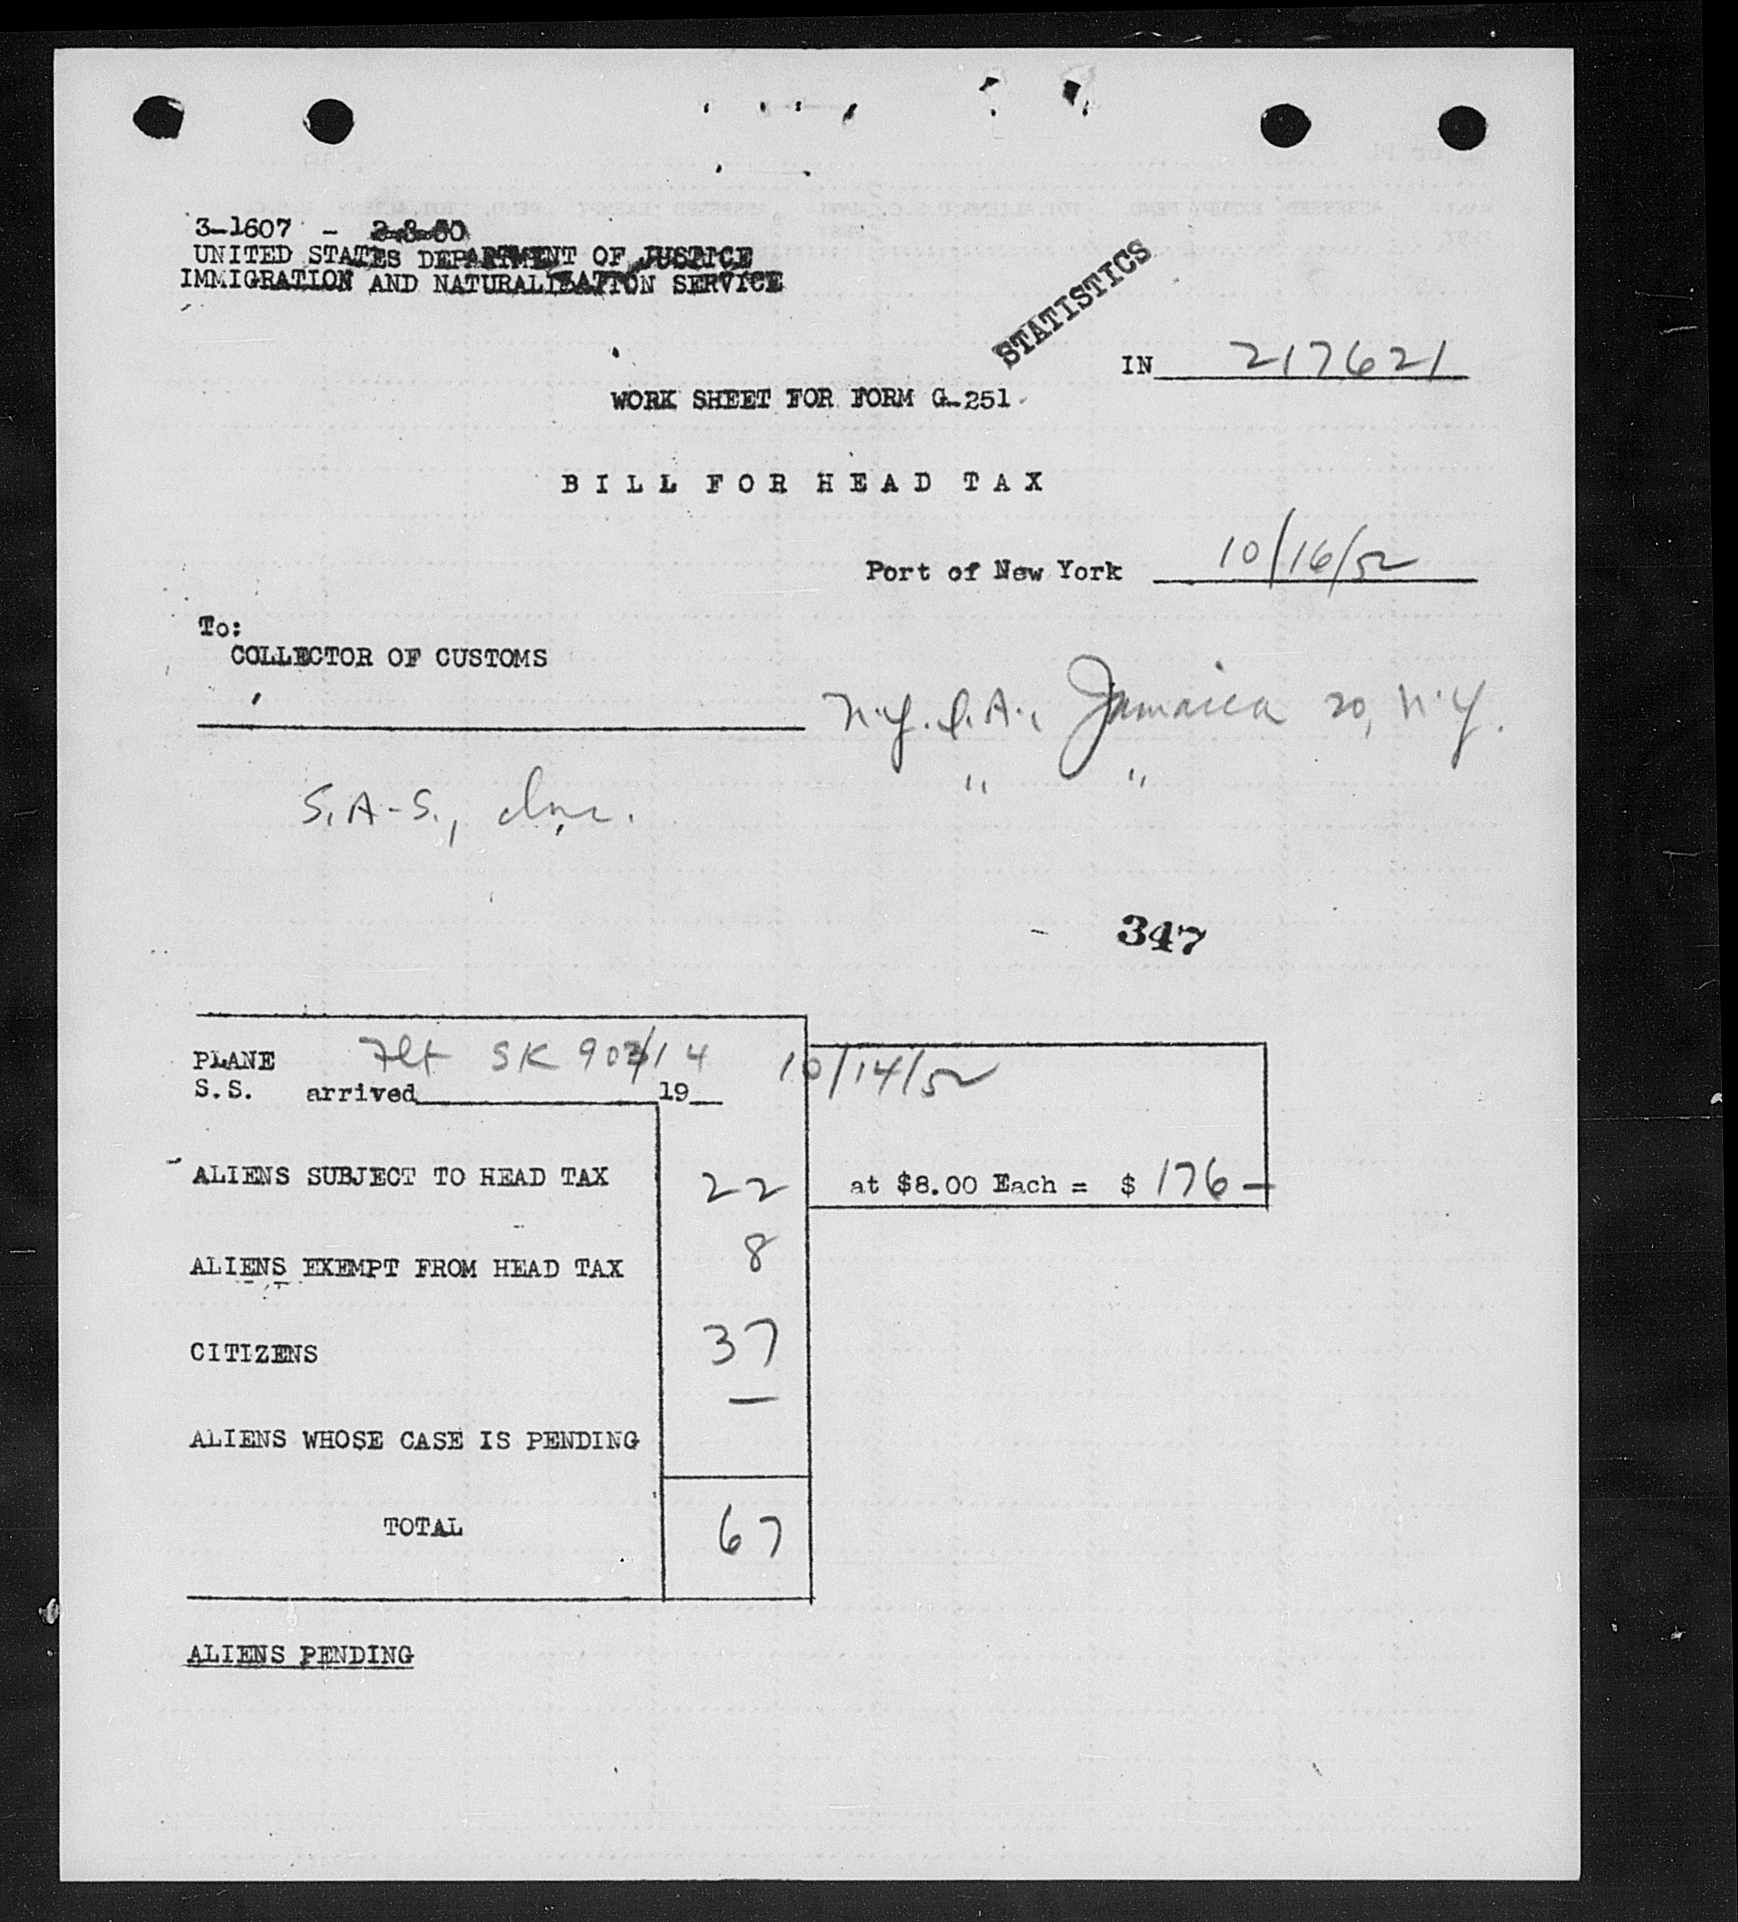 3-1607 - 2-8-50
UNITED STATES DEPARTMENT OF JUSTICE
IMMIGRATION AND NATURALIZATION SERVICE
STATISTICS
IN 217621
WORK SHEET FOR FORM G-251
BILL FOR HEAD TAX
Port of New York 10/16/52
To:
COLLECTOR OF CUSTOMS
N.Y.I.A., Jamaica 20, N.Y.
S.A-S., Inc. " "
347
PLANE Flt SK 903/14 10/14/52
S.S. arrived 19
ALIENS SUBJECT TO HEAD TAX 22 at $8.00 Each = $ 176 —
ALIENS EXEMPT FROM HEAD TAX 8
CITIZENS 37
ALIENS WHOSE CASE IS PENDING —
TOTAL 67
ALIENS PENDING